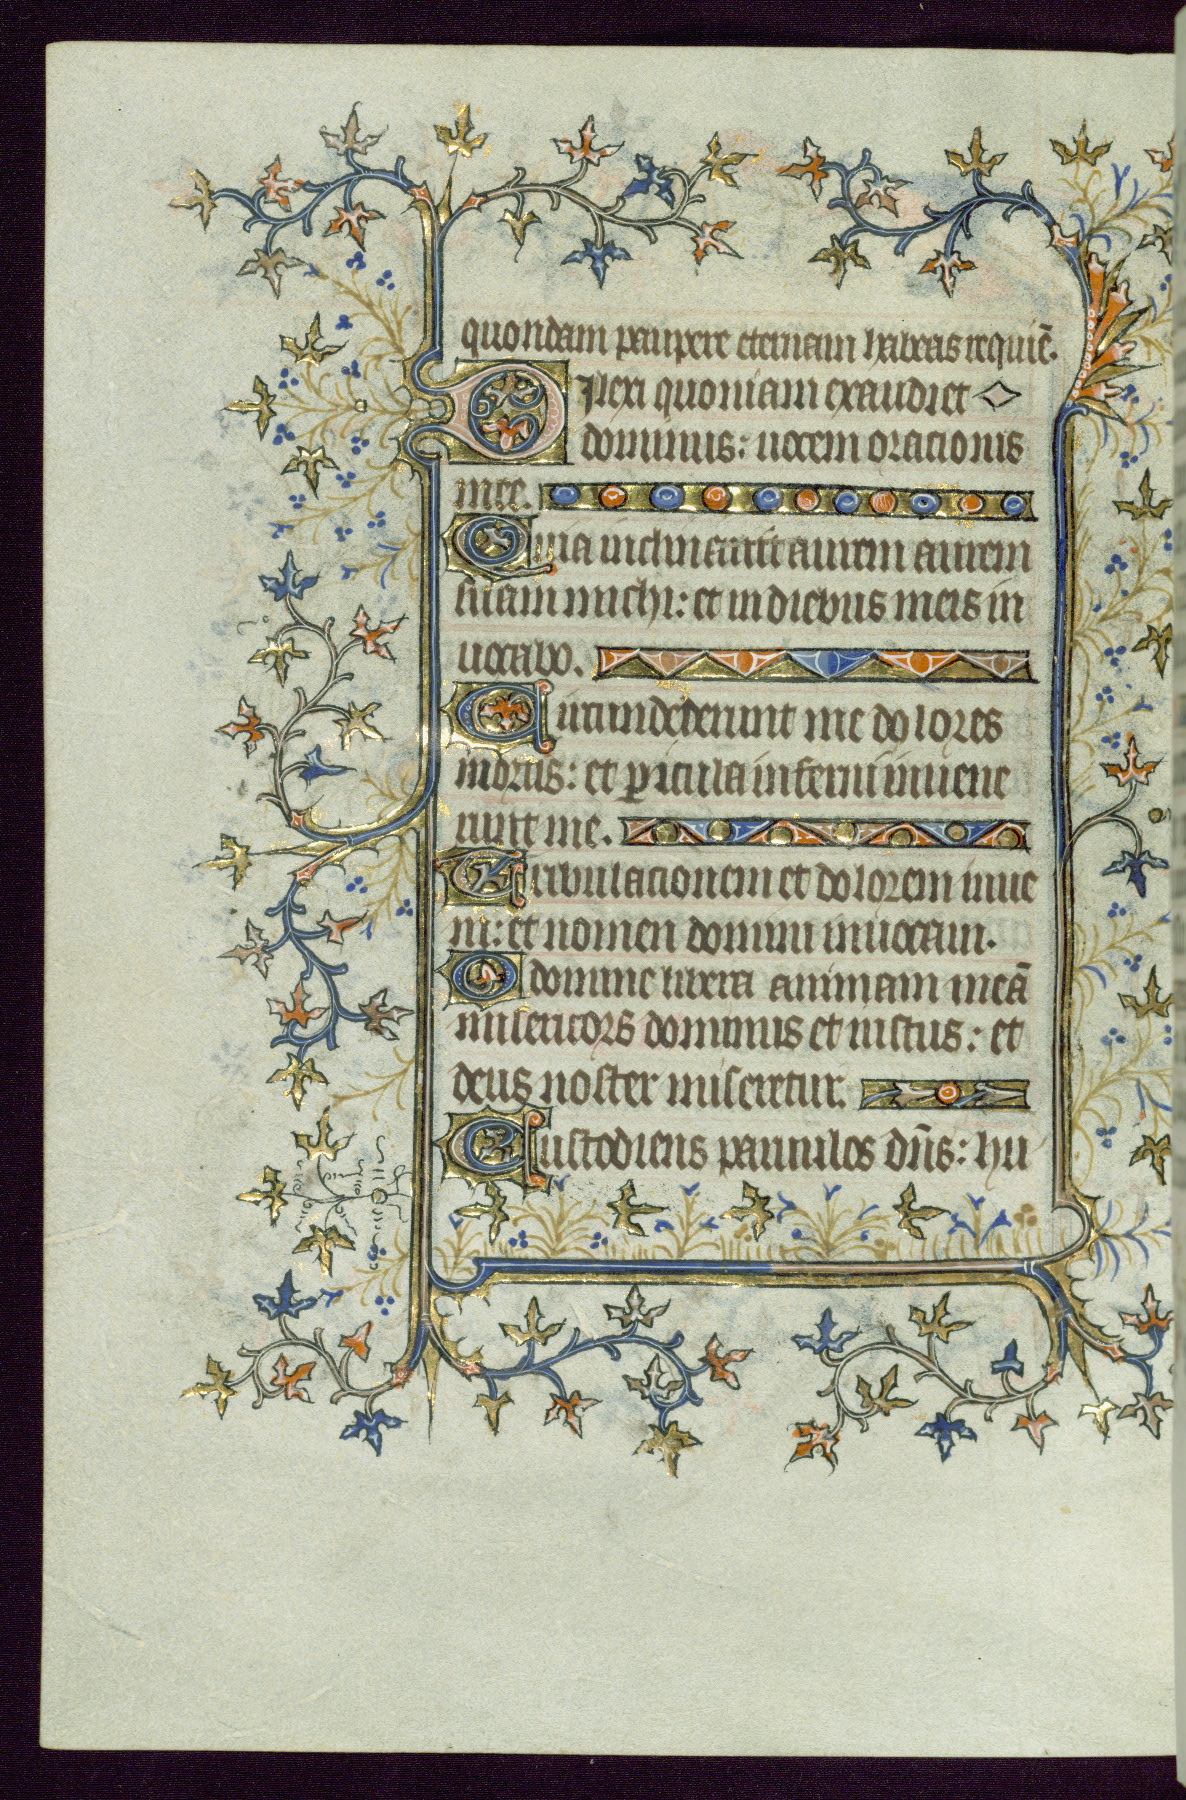 quondam paupere eternam habeas requiē.
Dilexi quoniam exaudiet
dominus: uocem oracionis
mee.
Quia inclinauit aurem aurem
suam michi: et in diebus meis in
uocabo.
Circundederunt me dolores
mortis: et pericula inferni inuene
runt me.
Tribulacionem et dolorem inue
ni: et nomen domini inuocaui.
O domine libera animam meā
misericors dominus et iustus: et
deus noster miseretur.
Custodiens paruulos dn̄s: hu